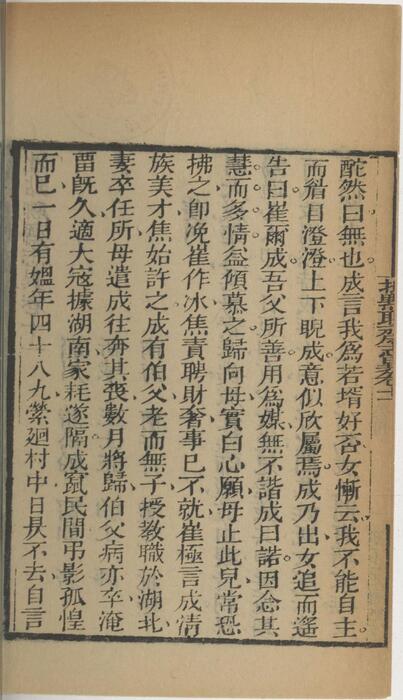 酡然曰無也成言我爲若壻好否女慚云我不能自主
而眉目澄澄上下睨成意似欣屬焉成乃出女追而遙
告曰崔爾成吾父所善用爲媒無不諧成曰諾因念其
慧而多情益傾慕之歸向母實白心願母止此兒常恐
拂之卽浼崔作冰焦責聘財奢事已不就崔極言成清
族美才焦始許之成有伯父老而無子授敎職於湖北
妻卒任所母遣成往奔其喪數月將歸伯父病亦卒淹
畱旣久適大寇據湖南家耗遂隔成竄民間弔影孤惶
而已一日有媼年四十八九縈迴村中日昃不去自言